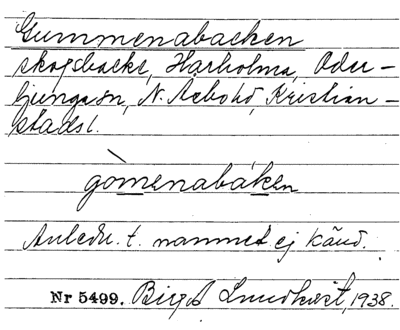 Gummenabacken
skogsbacke, Harholma, Oder-
ljungasn, N. Åsbo hd, Kristian-
stads l.
gòmenabáken
Anledn. t. namnet ej känd.
Nr 5499. Birgit Lundkvist, 1938.